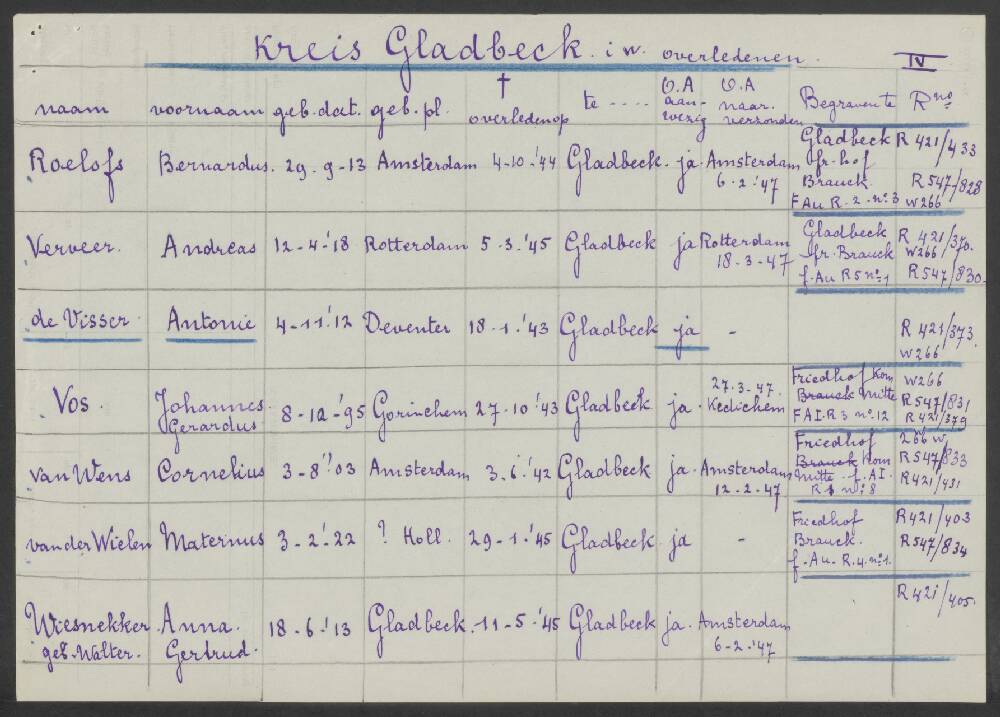 Kreis Gladbeck i w. overledenen. IV
naam voornaam geb. dat. geb. pl. † overleden op te .... O.A aan- wezig O.A naar. verzonden Begraven te R no
Roelofs Bernardus. 29-9-13 Amsterdam 4-10-'44 Gladbeck. ja. Amsterdam 6-2-'47 Gladbeck fr. hof Brauck. F Au R-2-no 3 R 421/433 R 547/828 W266
Verveer. Andreas 12-4-'18 Rotterdam 5-3-'45 Gladbeck ja Rotterdam 18-3-47 Gladbeck fr. Brauck f. Au R5 no 1 R 421/370. W266 R 547/830.
de Visser Antonie 4-11-'12 Deventer 18-1-'43 Gladbeck ja - R 421/373. W266
Vos. Johannes Gerardus 8-12-'95 Gorinchem 27-10-'43 Gladbeck ja. 27-3-47. Kedichem Friedhof Kom Brauck Mitte F A I-R 3 no 12 W266 R 547/831 R 421/379
van Wens Cornelius 3-8-'03 Amsterdam 3-6-'42 Gladbeck ja. Amsterdam 12-2-47 Friedhof Brauck Kom Mitte-f. A I- R 1 no 8 266 W R 547/833 R 421/431
van der Wielen Maternus 3-2-'22 ? Holl. 29-1-'45 Gladbeck ja - Friedhof Brauck. f. Au. R. 4. no 1. R 421/403 R 547/834
Wiesnekker geb. Walter. Anna. Gertrud. 18-6-'13 Gladbeck. 11-5-'45 Gladbeck ja. Amsterdam 6-2-'47 R 421/405.